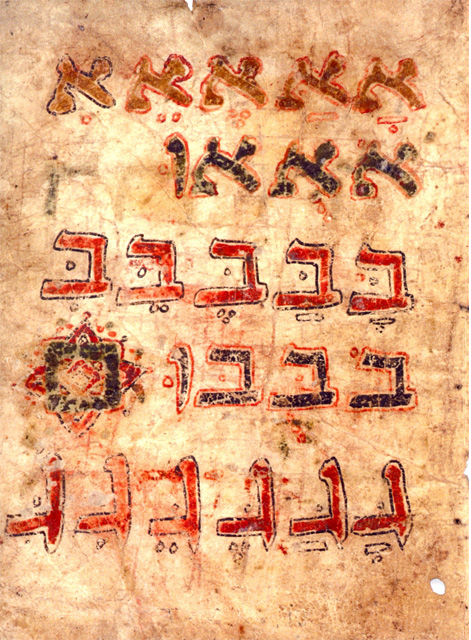 אָ אַ אֶ אֵ אִ
א א או
בָּ בַּ בֶּ בֵּ בּ
ב ב בוּ
גָ גַ גֶ גֵ גִ ג